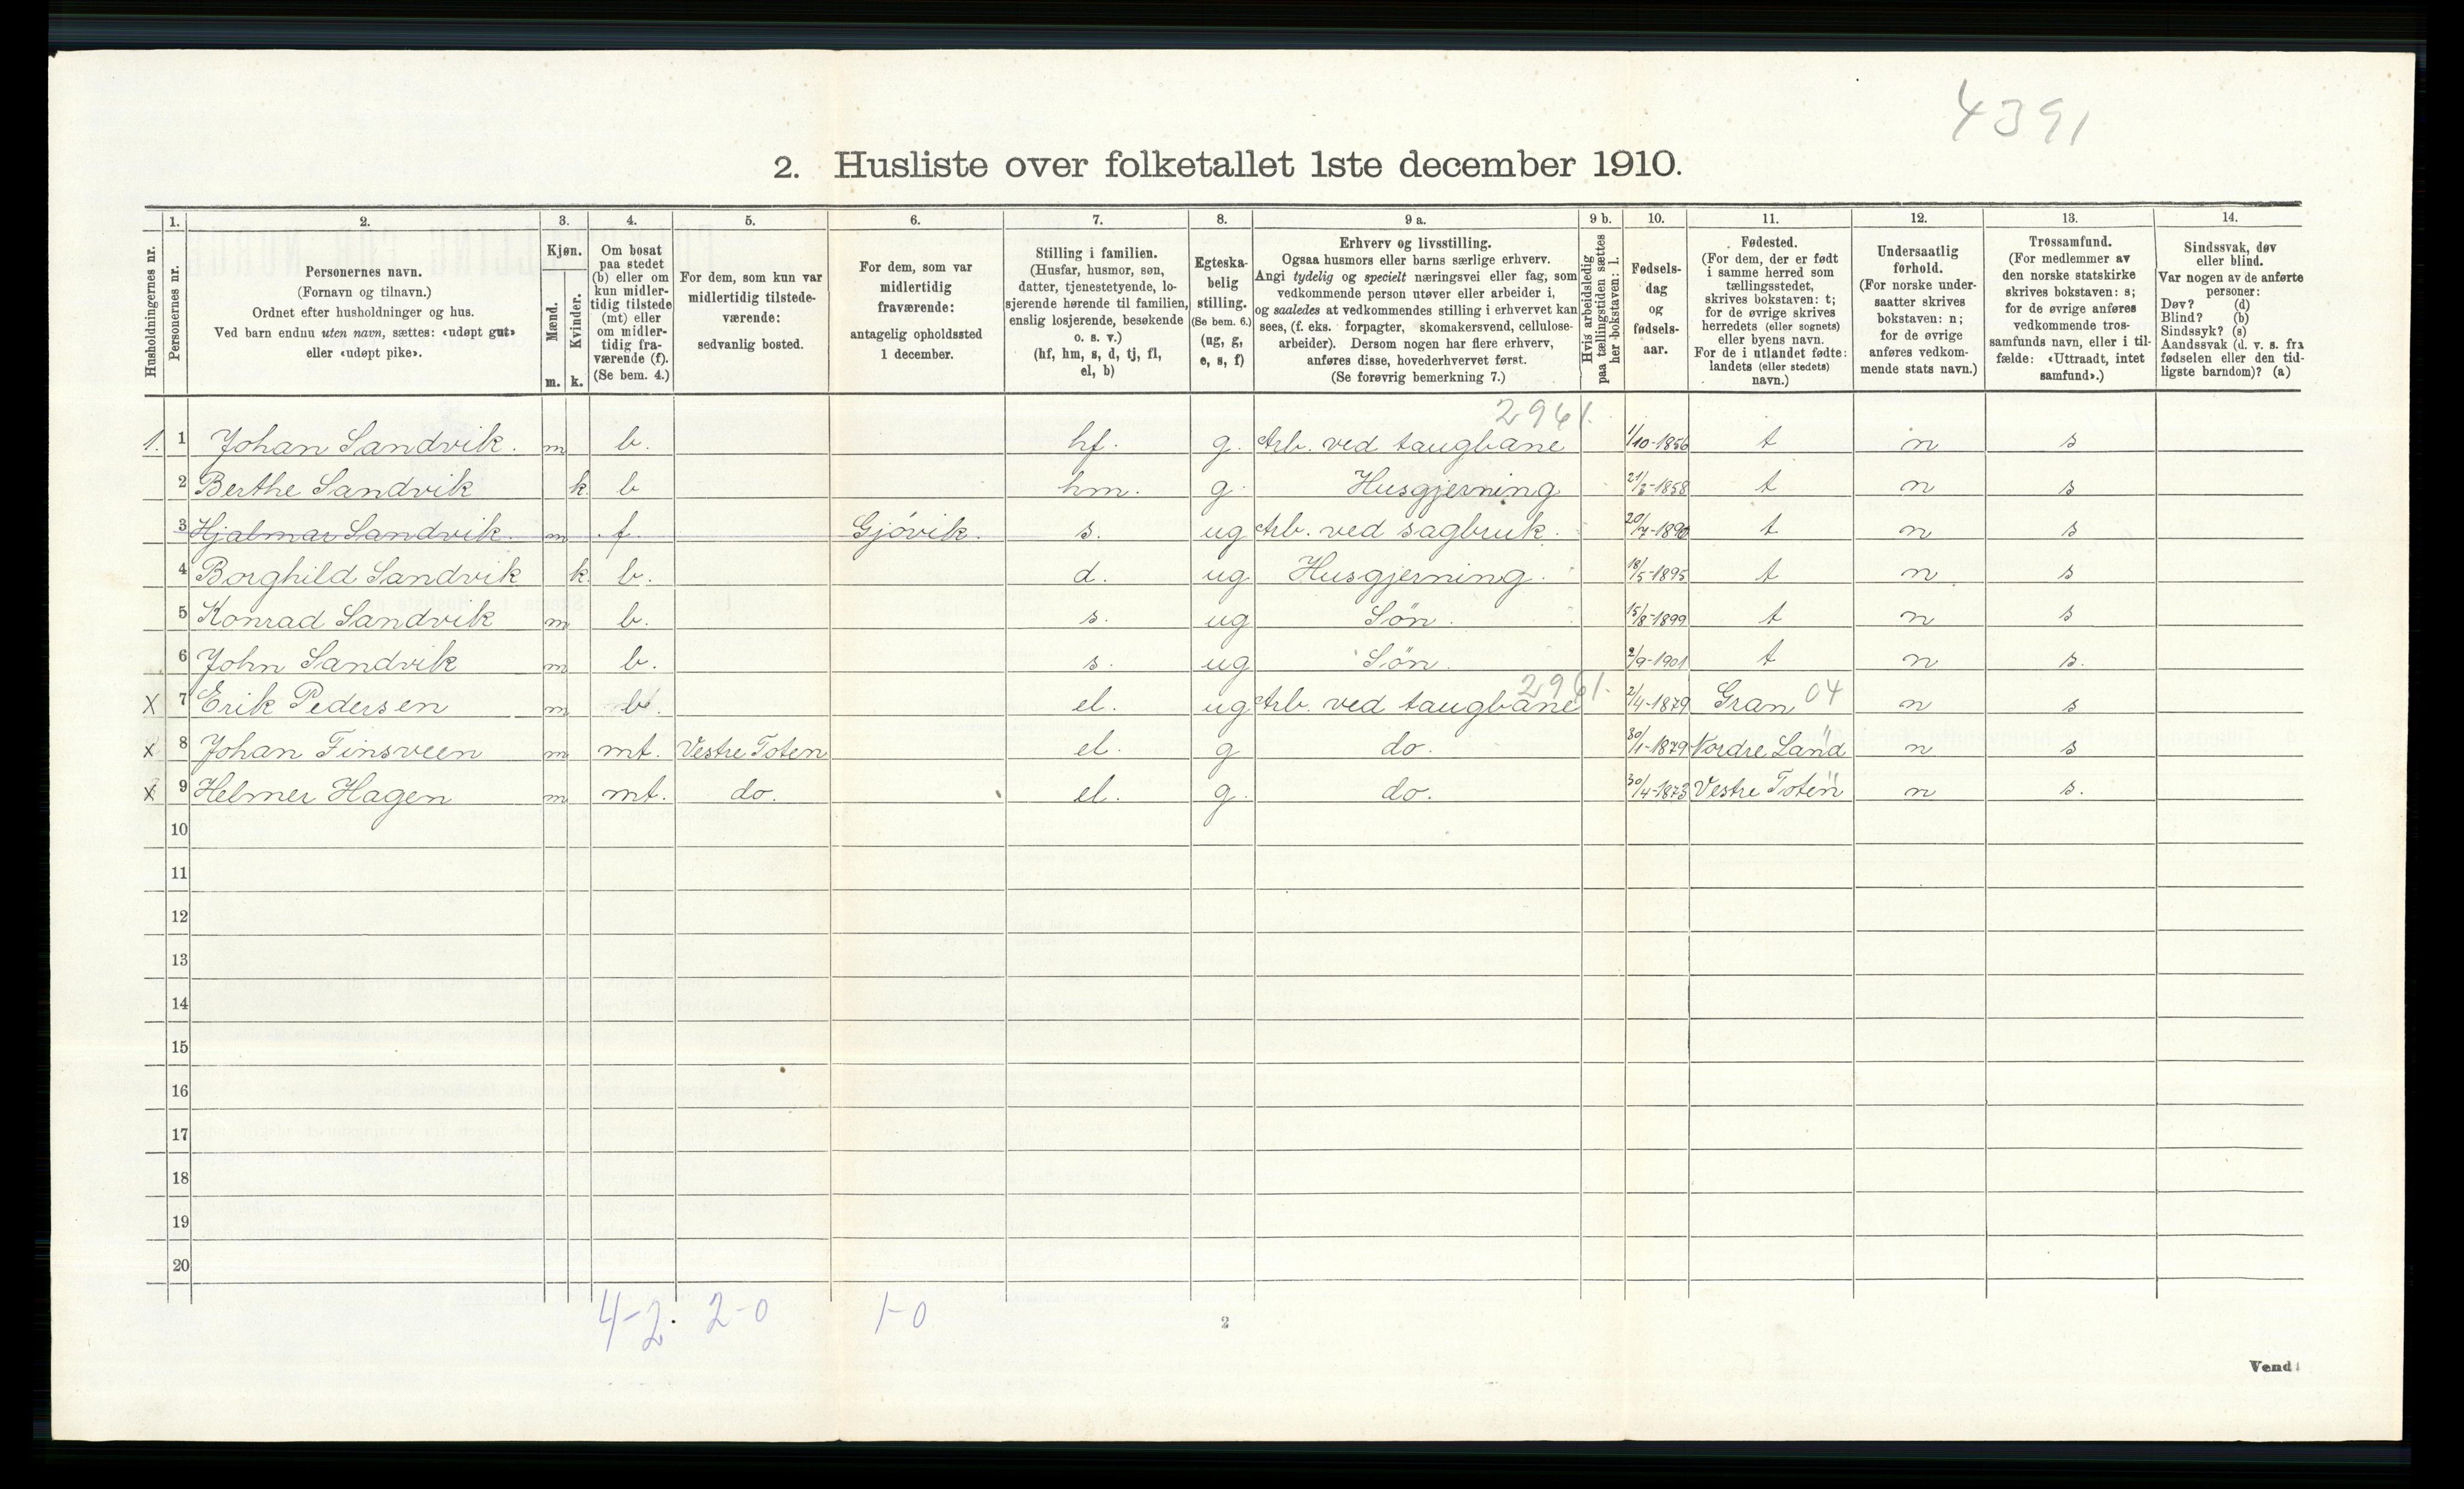 4391
2. Husliste over folketallet 1ste december 1910.
1. 2. 3. 4. 5. 6. 7. 8. 9 a. 9 b. 10. 11. 12. 13. 14.
Husholdningernes nr.
Personernes nr.
Personernes navn.
(Fornavn og tilnavn.)
Ordnet efter husholdninger og hus.
Ved barn endnu uten navn, sættes: «udøpt gut»
eller «udøpt pike».
Kjøn.
Mænd.
Kvinder.
m. k.
Om bosat
paa stedet
(b) eller om
kun midler-
tidig tilstede
(mt) eller
om midler-
tidig fra-
værende (f).
(Se bem. 4.)
For dem, som kun var
midlertidig tilstede-
værende:
sedvanlig bosted.
For dem, som var
midlertidig
fraværende:
antagelig opholdssted
1 december.
Stilling i familien.
(Husfar, husmor, søn,
datter, tjenestetyende, lo-
sjerende hørende til familien,
enslig losjerende, besøkende
o. s. v.)
(hf, hm, s, d, tj, fl,
el, b)
Egteska-
belig
stilling.
(Se bem. 6.)
(ug, g,
e, s, f)
Erhverv og livsstilling.
Ogsaa husmors eller barns særlige erhverv.
Angi tydelig og specielt næringsvei eller fag, som
vedkommende person utøver eller arbeider i,
og saaledes at vedkommendes stilling i erhvervet kan
sees, (f. eks. forpagter, skomakersvend, cellulose-
arbeider). Dersom nogen har flere erhverv,
anføres disse, hovederhvervet først.
(Se forøvrig bemerkning 7.)
Hvis arbeidsledig
paa tællingstiden sættes
her bokstaven: l.
Fødsels-
dag
og
fødsels-
aar.
Fødested.
(For dem, der er født
i samme herred som
tællingsstedet,
skrives bokstaven: t;
for de øvrige skrives
herredets (eller sognets)
eller byens navn.
For de i utlandet fødte:
landets (eller stedets)
navn.)
Undersaatlig
forhold.
(For norske under-
saatter skrives
bokstaven: n;
for de øvrige
anføres vedkom-
mende stats navn.)
Trossamfund.
(For medlemmer av
den norske statskirke
skrives bokstaven: s;
for de øvrige anføres
vedkommende tros-
samfunds navn, eller i til-
fælde: «Uttraadt, intet
samfund».)
Sindssvak, døv
eller blind.
Var nogen av de anførte
personer:
Døv? (d)
Blind? (b)
Sindssyk? (s)
Aandssvak (d. v. s. fra
fødselen eller den tid-
ligste barndom)? (a)
2961.
1. 1 Johan Sandvik. m b. hf. g. Arb. ved taugbane 1/10-1856 t n s
2 Berthe Sandvik k b hm. g. Husgjerning 21/3-1858 t n s
3 Hjalmar Sandvik. m f. Gjøvik. s. ug Arb. ved sagbruk. 20/7-1890 t n s
4 Borghild Sandvik k b. d. ug Husgjerning. 18/5-1895 t n s
5 Konrad Sandvik m b. s. ug Søn. 15/8-1899 t n s
6 John Sandvik m b. s. ug Søn. 2/9-1901 t n s.
2961.
x 7 Erik Pedersen m b. el. ug Arb. ved taugbane 2/4-1879 Gran 04 n s
x 8 Johan Finsveen m mt. Vestre Toten el. g do. 30/1-1879 Nordre Land " n s
x 9 Helmer Hagen m mt. do. el. g. do. 30/4-1873 Vestre Toten " n s.
10
11
12
13
14
15
16
17
18
19
20
4-2. 2-0 1-0
2
Vend!